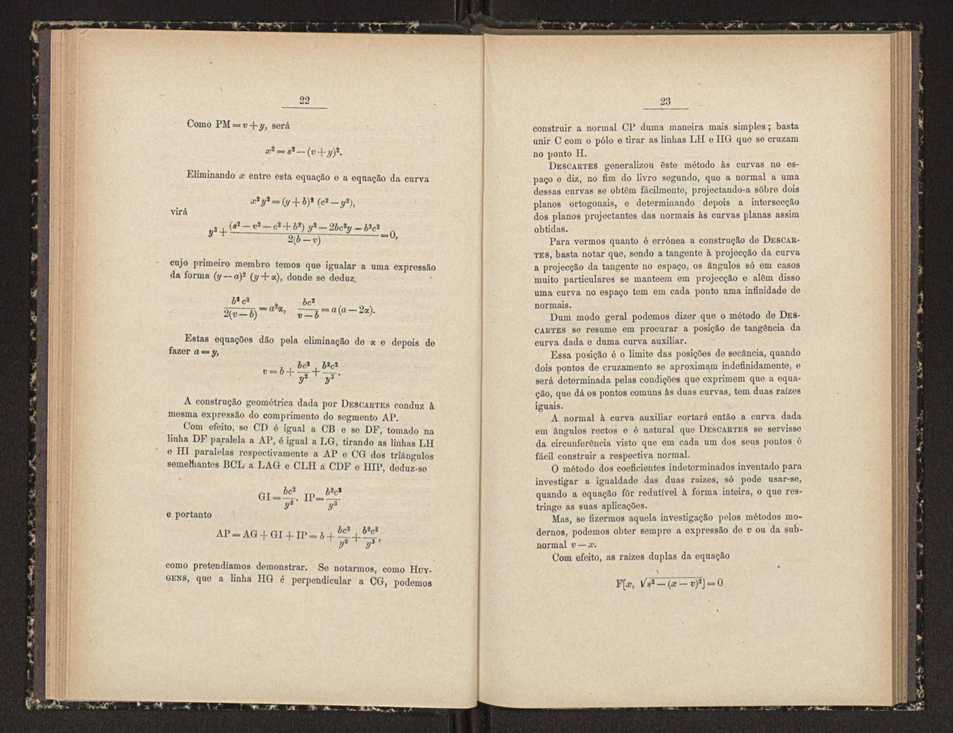 22
Como PM = v + y, será
x² = s² — (v + y)².
Eliminando x entre esta equação e a equação da curva
x²y² = (y + b)² (c² — y²),
virá
y² + (s² — v² — c² + b²) y² — 2bc²y — b²c² / 2(b — v) = 0,
cujo primeiro membro temos que igualar a uma expressão
da forma (y — a)² (y + α), donde se deduz
b² c² / 2(v — b) = a²α, bc² / v — b = a (a — 2α).
Estas equações dão pela eliminação de α e depois de
fazer a = y,
v = b + bc² / y² + b²c² / y³.
A construção geométrica dada por DESCARTES conduz à
mesma expressão do comprimento do segmento AP.
Com efeito, se CD é igual a CB e se DF, tomado na
linha DF paralela a AP, é igual a LG, tirando as linhas LH
e HI paralelas respectivamente a AP e CG dos triângulos
semelhantes BCL a LAG e CLH a CDF e HIP, deduz-se
GI = bc² / y², IP = b²c² / y³
e portanto
AP = AG + GI + IP = b + bc² / y² + b²c² / y³,
como pretendíamos demonstrar. Se notarmos, como HUY-
GENS, que a linha HG é perpendicular a CG, podemos
23
construir a normal CP duma maneira mais simples; basta
unir C com o pólo e tirar as linhas LH e HG que se cruzam
no ponto H.
DESCARTES generalizou êste método às curvas no es-
paço e diz, no fim do livro segundo, que a normal a uma
dessas curvas se obtêm fácilmente, projectando-a sôbre dois
planos ortogonais, e determinando depois a intersecção
dos planos projectantes das normais às curvas planas assim
obtidas.
Para vermos quanto é errónea a construção de DESCAR-
TES, basta notar que, sendo a tangente à projecção da curva
a projecção da tangente no espaço, os ângulos só em casos
muito particulares se manteem em projecção e alêm disso
uma curva no espaço tem em cada ponto uma infinidade de
normais.
Dum modo geral podemos dizer que o método de DES-
CARTES se resume em procurar a posição de tangência da
curva dada e duma curva auxiliar.
Essa posição é o limite das posições de secância, quando
dois pontos de cruzamento se aproximam indefinidamente, e
será determinada pelas condições que exprimem que a equa-
ção, que dá os pontos comuns às duas curvas, tem duas raízes
iguais.
A normal à curva auxiliar cortará então a curva dada
em ângulos rectos e é natural que DESCARTES se servisse
da circunferência visto que em cada um dos seus pontos é
fácil construir a respectiva normal.
O método dos coeficientes indeterminados inventado para
investigar a igualdade das duas raízes, só pode usar-se,
quando a equação fôr redutível à forma inteira, o que res-
tringe as suas aplicações.
Mas, se fizermos aquela investigação pelos métodos mo-
dernos, podemos obter sempre a expressão de v ou da sub-
normal v — x.
Com efeito, as raízes duplas da equação
F[x, √s² — (x — v)²] = 0